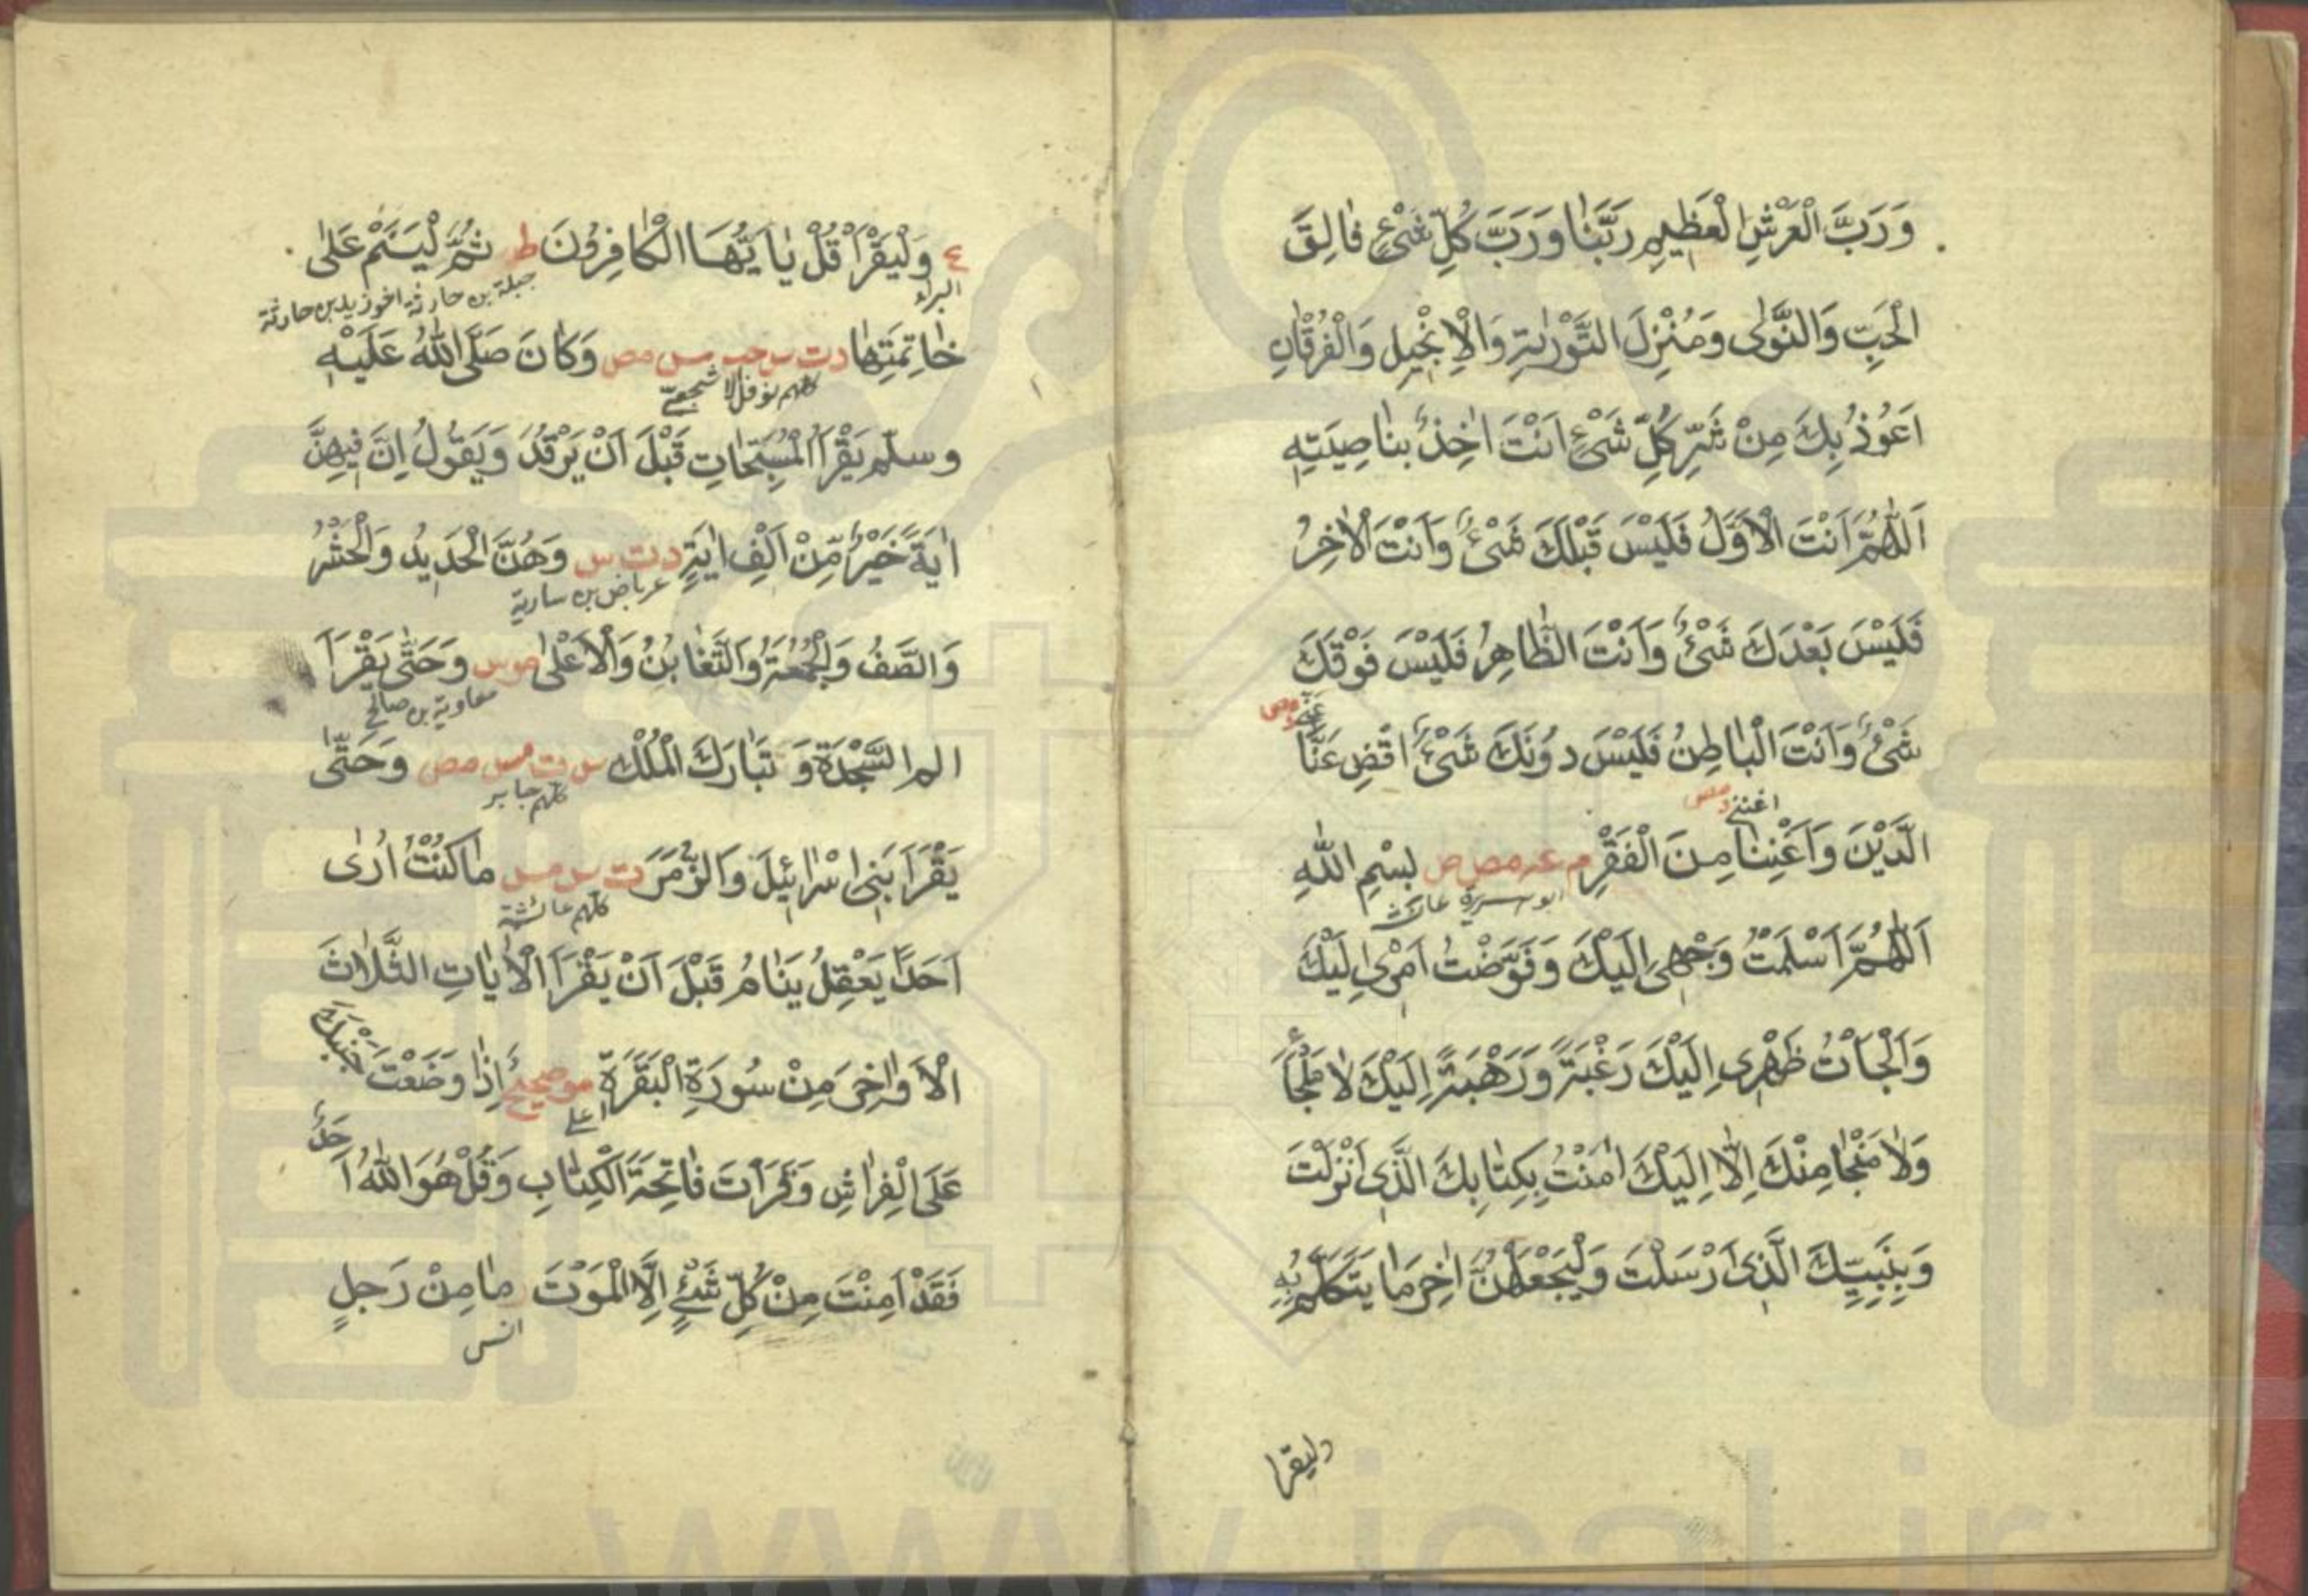 وَرَبَّ الْعَرْشِ الْعَظِيمِ رَبَّنَا وَرَبَّ كُلِّ شَيْءٍ فَالِقَ
الْحَبِّ وَالنَّوٰى وَمُنْزِلَ التَّوْرٰيةِ وَالْاِنْجٖيلِ وَالْفُرْقَانِ
اَعُوذُ بِكَ مِنْ شَرِّ كُلِّ شَيْءٍ اَنْتَ اٰخِذٌ بِنَاصِيَتِهِ
اَللّٰهُمَّ اَنْتَ الْاَوَّلُ فَلَيْسَ قَبْلَكَ شَيْءٌ وَاَنْتَ الْاٰخِرُ
فَلَيْسَ بَعْدَكَ شَيْءٌ وَاَنْتَ الظَّاهِرُ فَلَيْسَ فَوْقَكَ
شَيْءٌ وَاَنْتَ الْبَاطِنُ فَلَيْسَ دُونَكَ شَيْءٌ اقْضِ عَنَّا
اغننى د مص
الدَّيْنَ وَاَغْنِنَا مِنَ الْفَقْرِ م عه مص ص بِسْمِ اللّٰهِ
اَللّٰهُمَّ اَسْلَمْتُ وَجْهِي اِلَيْكَ وَفَوَّضْتُ اَمْرِي اِلَيْكَ
وَاَلْجَاْتُ ظَهْرِي اِلَيْكَ رَغْبَةً وَرَهْبَةً اِلَيْكَ لَا مَلْجَأَ
وَلَا مَنْجَا مِنْكَ اِلَّا اِلَيْكَ اٰمَنْتُ بِكِتَابِكَ الَّذِي اَنْزَلْتَ
وَبِنَبِيِّكَ الَّذِي اَرْسَلْتَ وَلْيَجْعَلْهُنَّ اٰخِرَ مَا يَتَكَلَّمُ بِهِ
وليقرا
ع وَلْيَقْرَاْ قُلْ يَا اَيُّهَا الْكَافِرُونَ ط ثُمَّ لْيَنَمْ عَلٰى
البراء جبلة بن حارثة اخو زيد بن حارثة
خَاتِمَتِهَا د ت س حب مس مص وَكَانَ صَلَّى اللّٰهُ عَلَيْهِ
كلهم نوفل الاشجعى
وسلّم يَقْرَاُ الْمُسَبِّحَاتِ قَبْلَ اَنْ يَرْقُدَ وَيَقُولُ اِنَّ فِيهِنَّ
اٰيَةً خَيْرٌ مِّنْ اَلْفِ اٰيَةٍ د ت س وَهُنَّ الْحَدِيدُ وَالْحَشْرُ
عرباض بن سارية
وَالصَّفُّ وَالْجُمُعَةُ وَالتَّغَابُنُ وَالْاَعْلٰى مو س وَحَتّٰى يَقْرَاَ
معاوية بن صالح
الم السَّجْدَةَ وَ تَبَارَكَ الْمُلْكَ س ت مس مص وَحَتّٰى
كلهم جابر
يَقْرَاَ بَنِي اِسْرَائِيلَ وَالزُّمَرَ ت س مس مَا كُنْتُ اُرٰى
كلهم عائشة
اَحَدًا يَعْقِلُ يَنَامُ قَبْلَ اَنْ يَقْرَاَ الْاٰيَاتِ الثَّلَاثَ
الْاَوَاخِرَ مِنْ سُورَةِ الْبَقَرَةِ مو صحيح اِذَا وَضَعْتَ جَنْبَكَ
على
عَلَى الْفِرَاشِ وَقَرَاْتَ فَاتِحَةَ الْكِتَابِ وَقُلْ هُوَ اللّٰهُ اَحَدٌ
فَقَدْ اَمِنْتَ مِنْ كُلِّ شَيْءٍ اِلَّا الْمَوْتَ مَا مِنْ رَجُلٍ
انس
www.ical.ir